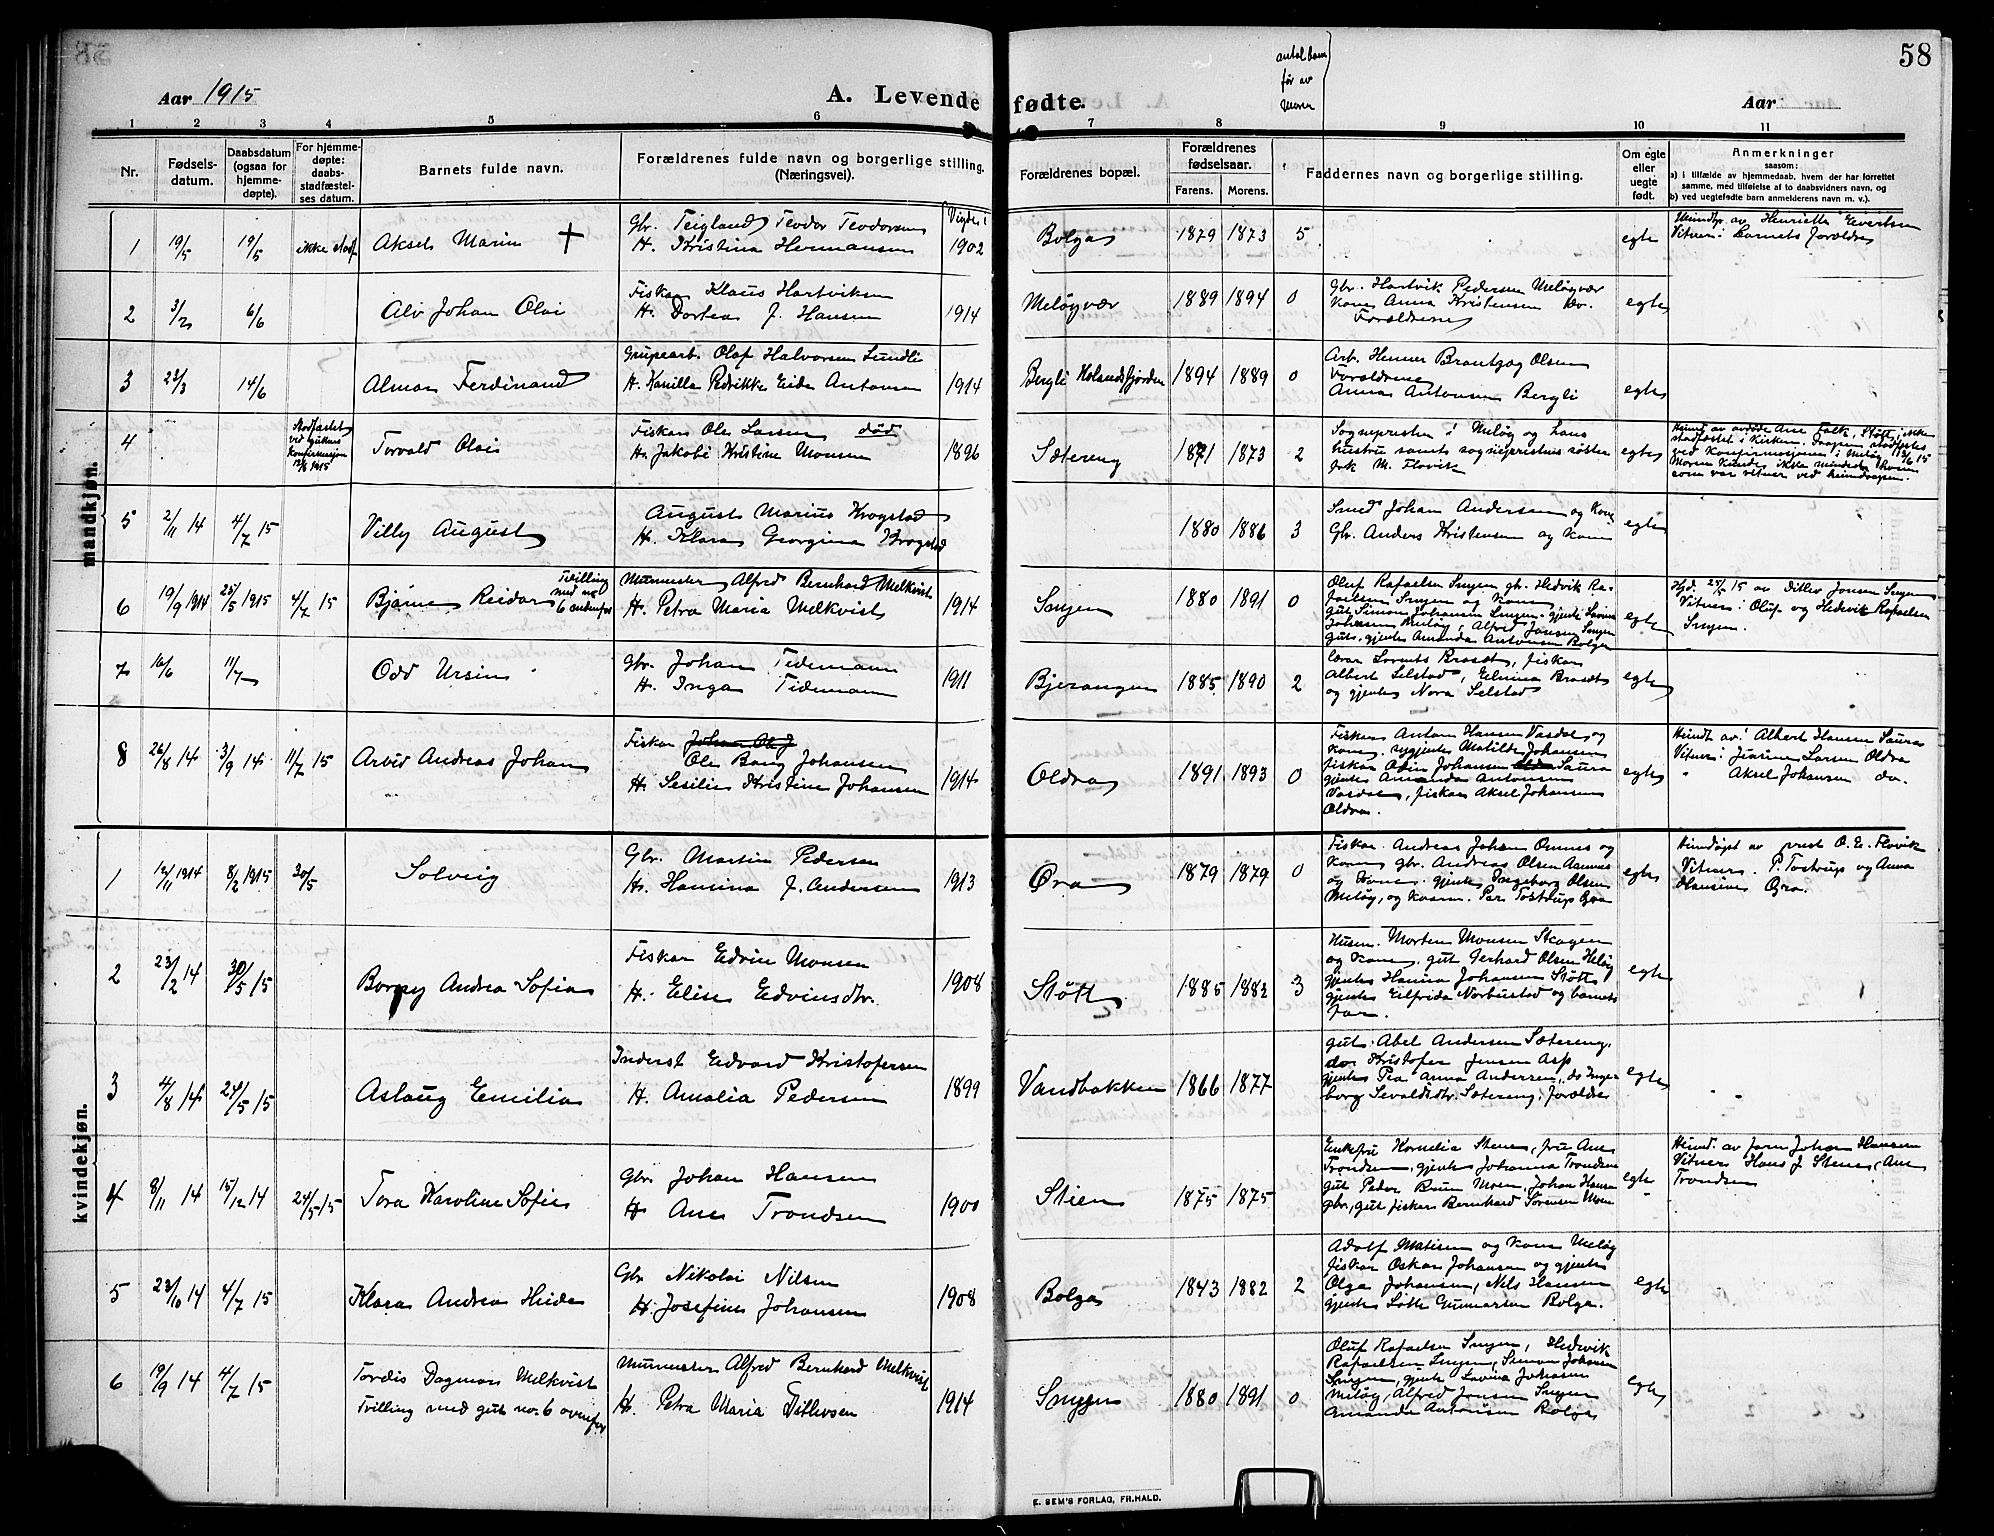 58
Aar 1915
A. Levende fødte.
antal barn
før av
Moren
Aar
1 2 3 4 5 6 7 8 9 10 11
Nr.
Fødsels-
datum.
Daabsdatum
(ogsaa for
hjemme-
døpte).
For hjemme-
døpte:
daabs-
stadfæstel-
ses datum.
Barnets fulde navn.
Forældrenes fulde navn og borgerlige stilling.
(Næringsvei).
Vigde i
Forældrenes bopæl.
Forældrenes
fødselsaar.
Farens. Morens.
Faddernes navn og borgerlige stilling.
Om egte
eller
uegte
født.
Anmerkninger
saasom:
a) i tilfælde av hjemmedaab, hvem der har forrettet
samme, med tilføielse af to daabsvidners navn, og
b) ved uegtefødte barn anmelderens navn m. v.).
mandkjøn.
1 19/5 19/5 ikke stadf. Aksel Marin +
Gbr. Teigland Teodor Teodorsen
H. Kristina Hermansen 1902
Bolga 1879 1873 5 egte
av Henriette Evertsen
Vitner: barnets forældre
2 3/2 6/6 Alv Johan Olai
Fisker Klaus Hartviksen
H. Dortea J. Hansen 1914
Meløyvær 1889 1894 0
Gbr. Hartvik Pedersen Meløyvær
Kone Anna Kristensen do.
Forældrene
egte
3 23/3 14/6 Almar Ferdinand
Grupearb. Olaf Halvorsen Lundli
H. Kamilla Pedrikke Eide Antonsen 1914
Bergli Holandsfjorden 1894 1889 0
Arb. Henner Brantzog Olsen
Forældrene
Anna Antonsen Bergli
egte
4 Stadfæstet
ved guttens
konfirmasjon
13/6 1915
Torvald Olai
Fisker Ole Larsen død
H. Jakobi Kristine Monsen 1896
Sætereng 1871 1873 2
Sognepresten i Meløy og hans
hustru samt sogneprestens søster
frk M. Flovik
egte
Hjemd. av avdøde Ane Falk, Støtt; ikke
stadfæstet i kirken. Daapen stadfæstet
ved Konfirmasjonen i Meløy 13/6 15
Moren kunde ikke mindes hvem
som var vitner ved hjemdaapen.
5 2/11 14 4/7 15 Villy August
August Marius Krogstad
H. Klara Georgina Krogstad
1880 1886 3
Smed Johan Andersen og Kone
Gbr. Anders Kristensen og Kone
egte
6 19/9 1914 25/5 1915 4/7 15 Bjarne Reidar
Tvilling
med no
6 nedenfor
Murmester Alfred Bernhard Melkvist
H. Petra Maria Melkvist 1914
Smyen 1880 1891 0
Oluf Rafaelsen Smyen gbr. Hedvik Ra-
faelsen Smyen og Kone
gut Simon Johansen Smyen. gjente Lovina
Johansen Meløy, Alfred Jonsen Smyen
gut, gjente Amanda Antonsen Bolga
egte
Hjd. 25/5 15 av Ditlev Jonsen Smyen
Vitner: Oluf og Hedvik Rafaelsen
Smyen.
7 16/6 11/7 Odd Ursin
Gbr. Johan Tidemann
H. Inga Tidemann 1911
Bjerangen 1885 1890 2
Lærer Lornts Brasdt, fisker
Albert Selstad, Elmina Brasdt
og gjente Nora Selstad
egte
8 26/8 14 3/9 14 11/7 15 Arvid Andreas Johan
Fisker
Ole Bang Johansen
H. Sesilie Kristine Johansen 1914
Oldra 1891 1893 0
Fisker Anton Hansen Vasdal og
Kone. ugjente Matilde Johansen
fisker Odin Johansen Saura
gjente Amanda Antonsen
Vasdal, fisker Aksel Johansen
Oldra.
egte
Hjemdt av: Albert Hansen Saura
Vitner: Jensine Larsen Oldra
" Aksel Johansen do.
kvindekjøn.
1 12/11 1914 8/2 1915 30/5 Solveig
Gbr. Martin Pedersen
H. Hanina J. Andersen 1913
Øra 1879 1879 0
Fisker. Andreas Johan Ornnes og
Kone gbr. Andreas Olsen Aannes
og Kone. gjente Ingeborg Olsen
Meløy, og Kvarm. Per Tostrup Øra
egte
Hjemdøpt av prest O. E. Flovik
Vitner. P. Tostrup og Anna
Hansine Øra.
2 23/2 14 30/5 15 Borgy Andrea Sofie
Fisker Edvin Monsen
H. Elise Edvinsdtr. 1908
Støtt 1885 1882 3
Husm. Morten Monsen Skagen
og Kone. gut Gerhard Olsen Meløy
gjente Hanina Johansen Støtt
gjente Elfrida Norbustad og barnets
far.
egte
3 4/8 14 24/5 15 Aslaug Emilie
Inderst Edvard Kristofersen
H. Amalia Pedersen 1899
Vandbakken 1866 1877
gut. Abel Andersen Sætereng,
do Kristofer Jensen Asp
gjente Pea Anna Andersen, do Inge-
borg Sevaldsdtr. Sætereng, forældre
egte
4 8/11 14 15/12 14 24/5 15 Tora Karoline Sofie
Gbr. Johan Hansen
H. Ane Trondsen 1900
Stien 1875 1875
Enkefru Kornelia Stene, fru Ane
Trondsen, gjente Johanna Trondsen
gut Peder Brun Moen, Johan Hansen
gbr., gut fisker Bernhard Sørensen Moen
egte
Hjemd. av farm Johan Hansen
Vitner Hans J. Stene, Ane
Trondsen
5 23/10 14 4/7 15 Klara Andrea Heide
Gbr. Nikolai Nilsen
H. Josefine Johansen 1908
Bolga 1843 1882 2
Adolf Matisen og Kone Meløy
fisker Oskar Johansen og gjente
Olga Johansen, Nils Hansen
gjente Lotte Gunnarsen Bolga.
egte
6 19/9 14 4/7 15 Tordis Dagmar Melkvist
Tvilling med gut no. 6 ovenfor
Murmester Alfred Bernhard Melkvist
H. Petra Maria Ditlevsen 1914
Smyen 1880 1891 0
Oluf Rafaelsen Smyen, Hedvik
Rafaelsen Smyen, Simon Johansen
Smyen, gjente Lovina Johansen
Meløy, Alfred Jonsen Smyen
Amanda Antonsen Bolga
egte
E. SEM'S FORLAG, FR.HALD.